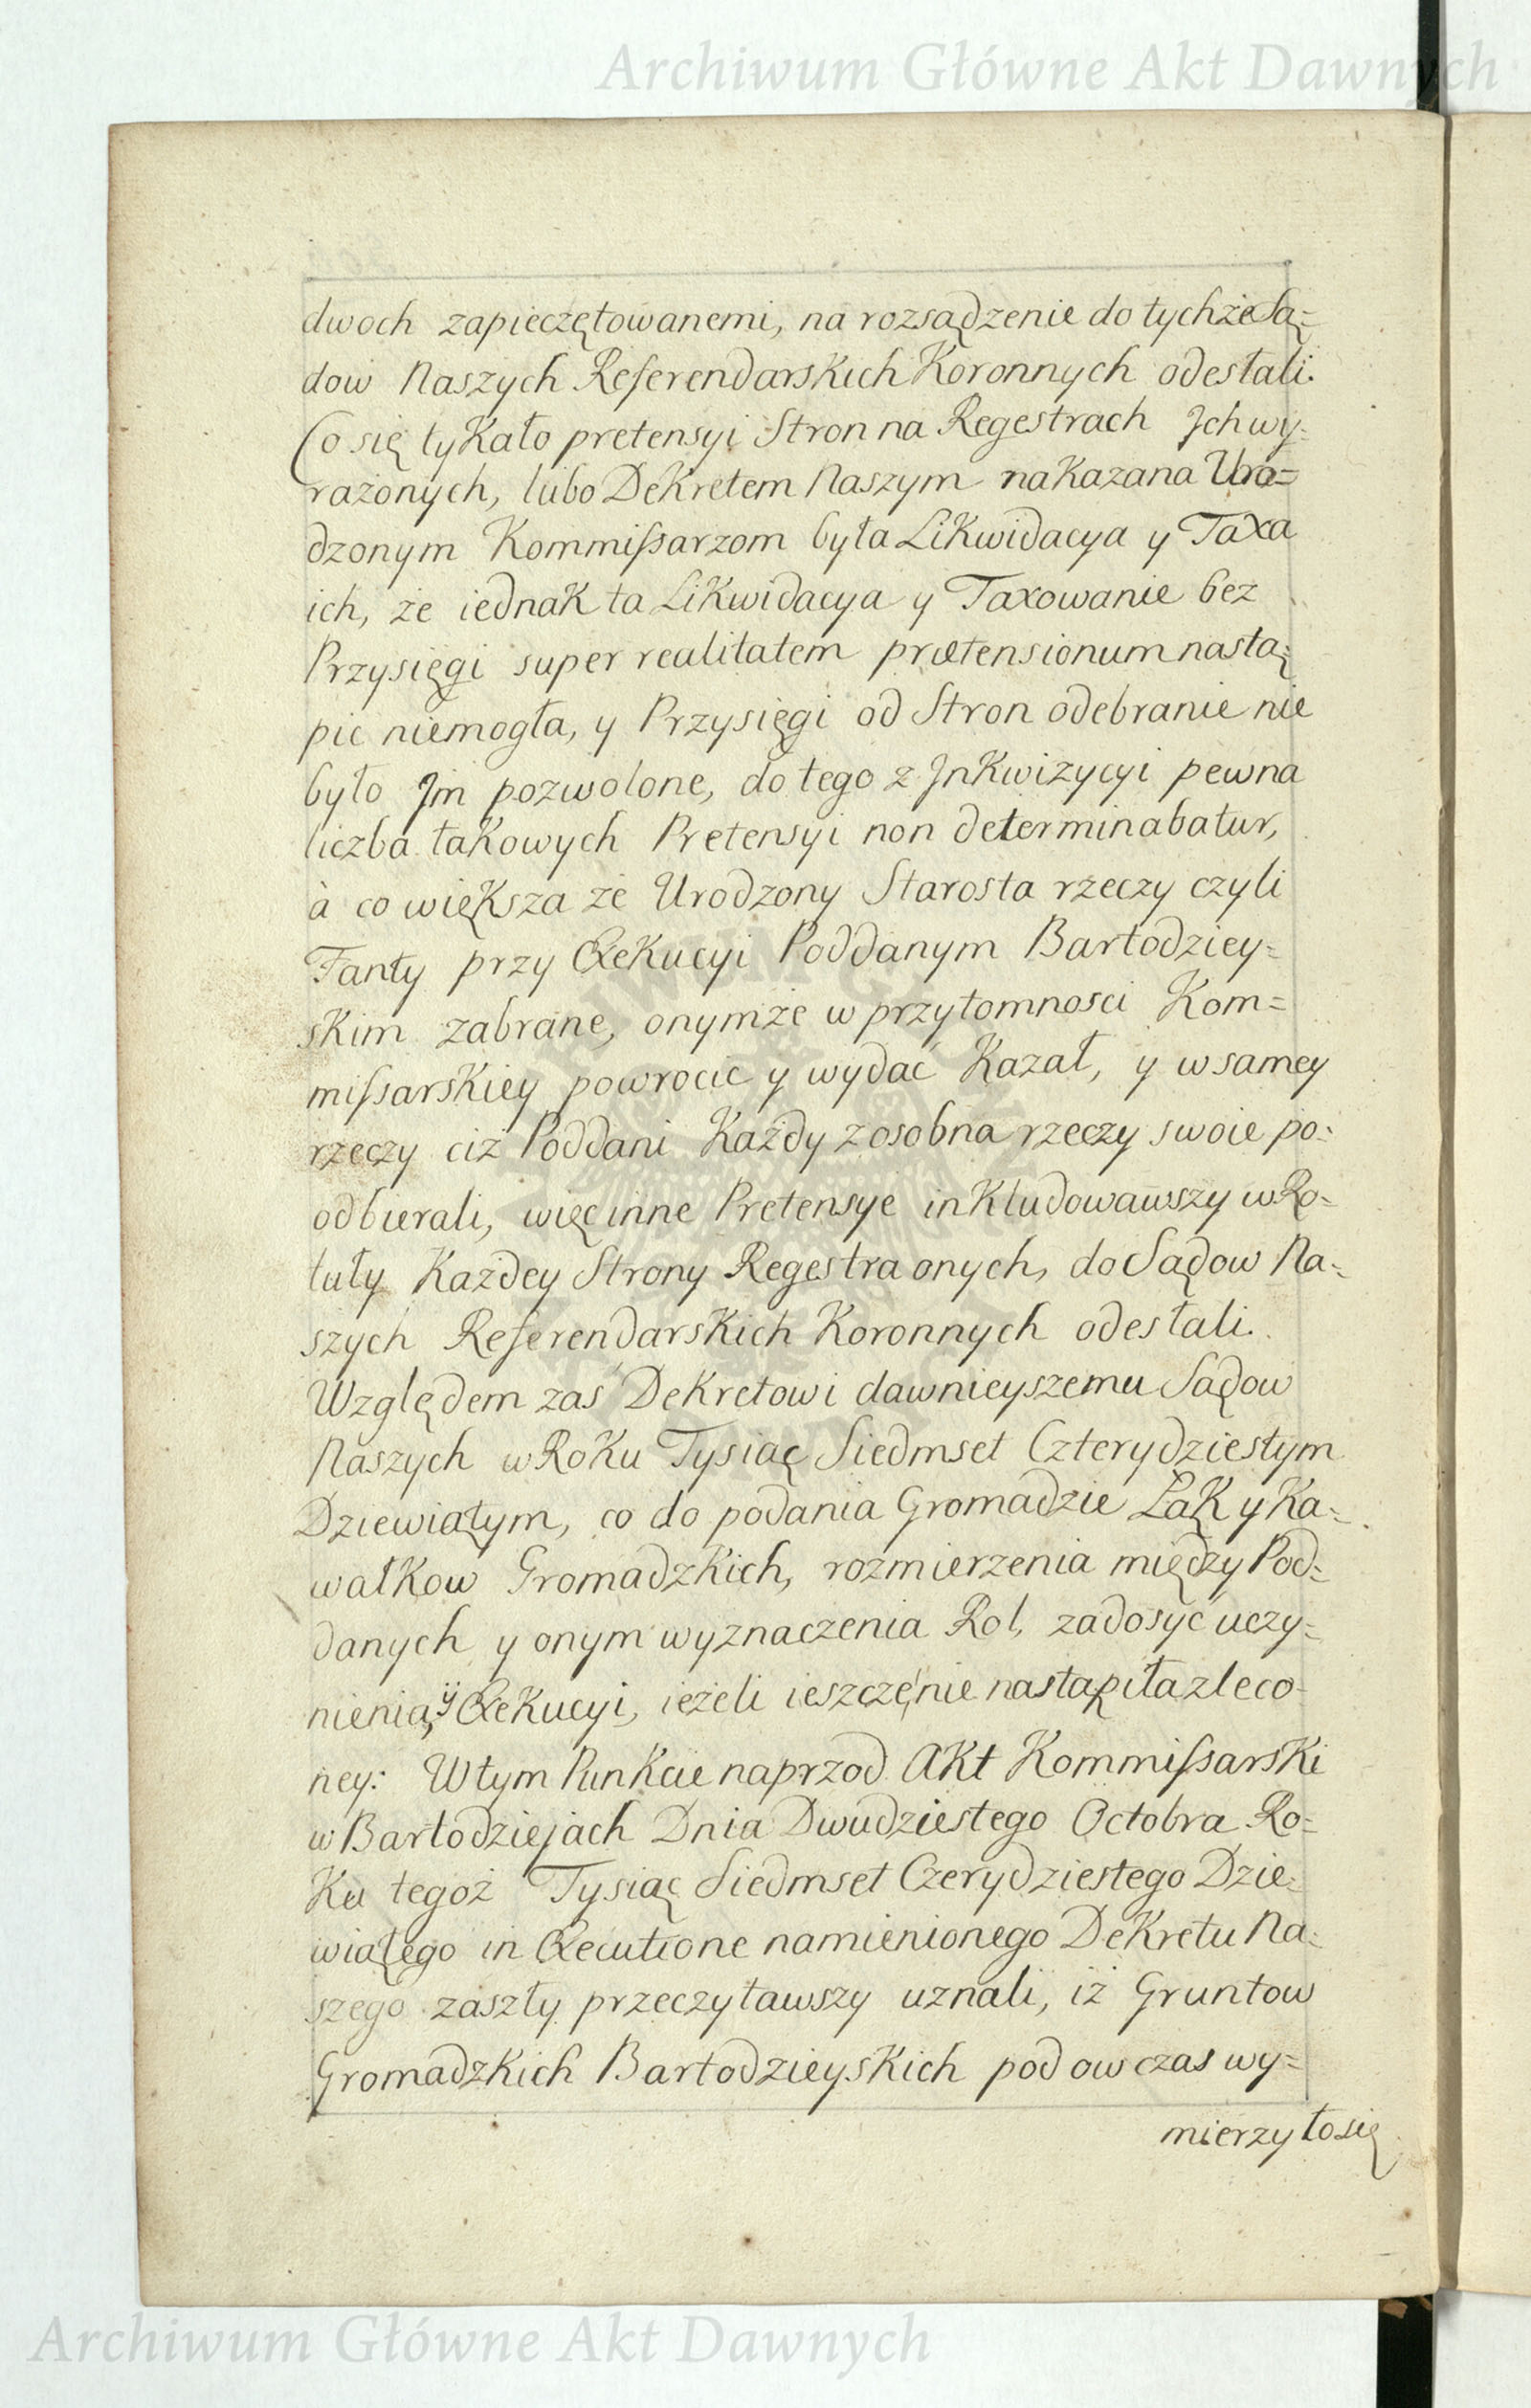 Archiwum Główne Akt Dawnych
dwoch zapieczętowanemi, na rozsądzenie do tychże Są=
dow Naszych Referendarskich Koronnych odesłali.
Co się tykało pretensyi Stron na Regestrach Jch wy=
rażonych, lubo Dekretem Naszym nakazana Uro=
dzonym Kommissarzom była Likwidacya y Taxa
ich, że iednak ta Likwidacya y Taxowanie bez
Przysięgi super realitatem prætensionum nastą=
pic niemogła, y Przysięgi od Stron odebranie nie
było Jm pozwolone, do tego z Jnkwizycyi pewna
liczba takowych Pretensyi non determinabatur,
à co większa że Urodzony Starosta rzeczy czyli
Fanty przy Exekucyi Poddanym Bartodziey=
skim zabrane, onymże w przytomnosci Kom=
missarskiey powrocić y wydać Kazał, y w samey
rzeczy ciż Poddani Każdy z osobna rzeczy swoie po=
odbierali, więc inne Pretensye inkludowawszy w Ro=
tuły Każdey Strony Regestra onych, do Sądow Na=
szych Referendarskich Koronnych odesłali.
Względem zaś Dekretowi dawnieyszemu Sądow
Naszych w Roku Tysiąc Siedmset Czterydziestym
Dziewiątym, co do podania Gromadzie Łąk y Ka=
wałkow Gromadzkich, rozmierzenia między Pod=
danych y onym wyznaczenia Rol, zadosyć uczy=
nienia, ÿ Exekucyi, ieżeli ieszcze nie nastąpiła zleco=
ney: W tym Punkcie naprzod Akt Kommissarski
w Bartodziejach Dnia Dwudziestego Octobra Ro=
Ku tegoż Tysiąc Siedmset Czerydziestego Dzie=
wiątego in Executione namienionego Dekretu Na=
szego zaszły przeczytawszy uznali, iż Gruntow
Gromadzkich Bartodzieyskich pod ow czas wy=
mierzyło się
Archiwum Główne Akt Dawnych